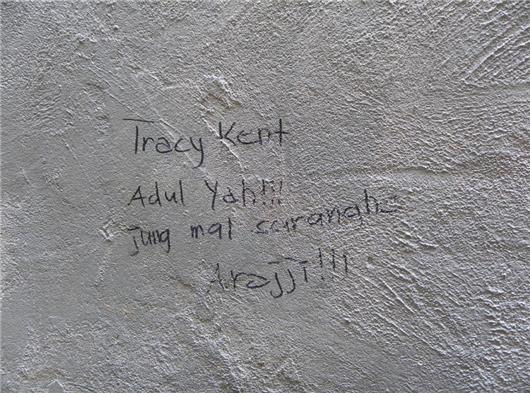 Tracy Kent
Adul Yah!!!
jung mal saranghe
Arajji!!!